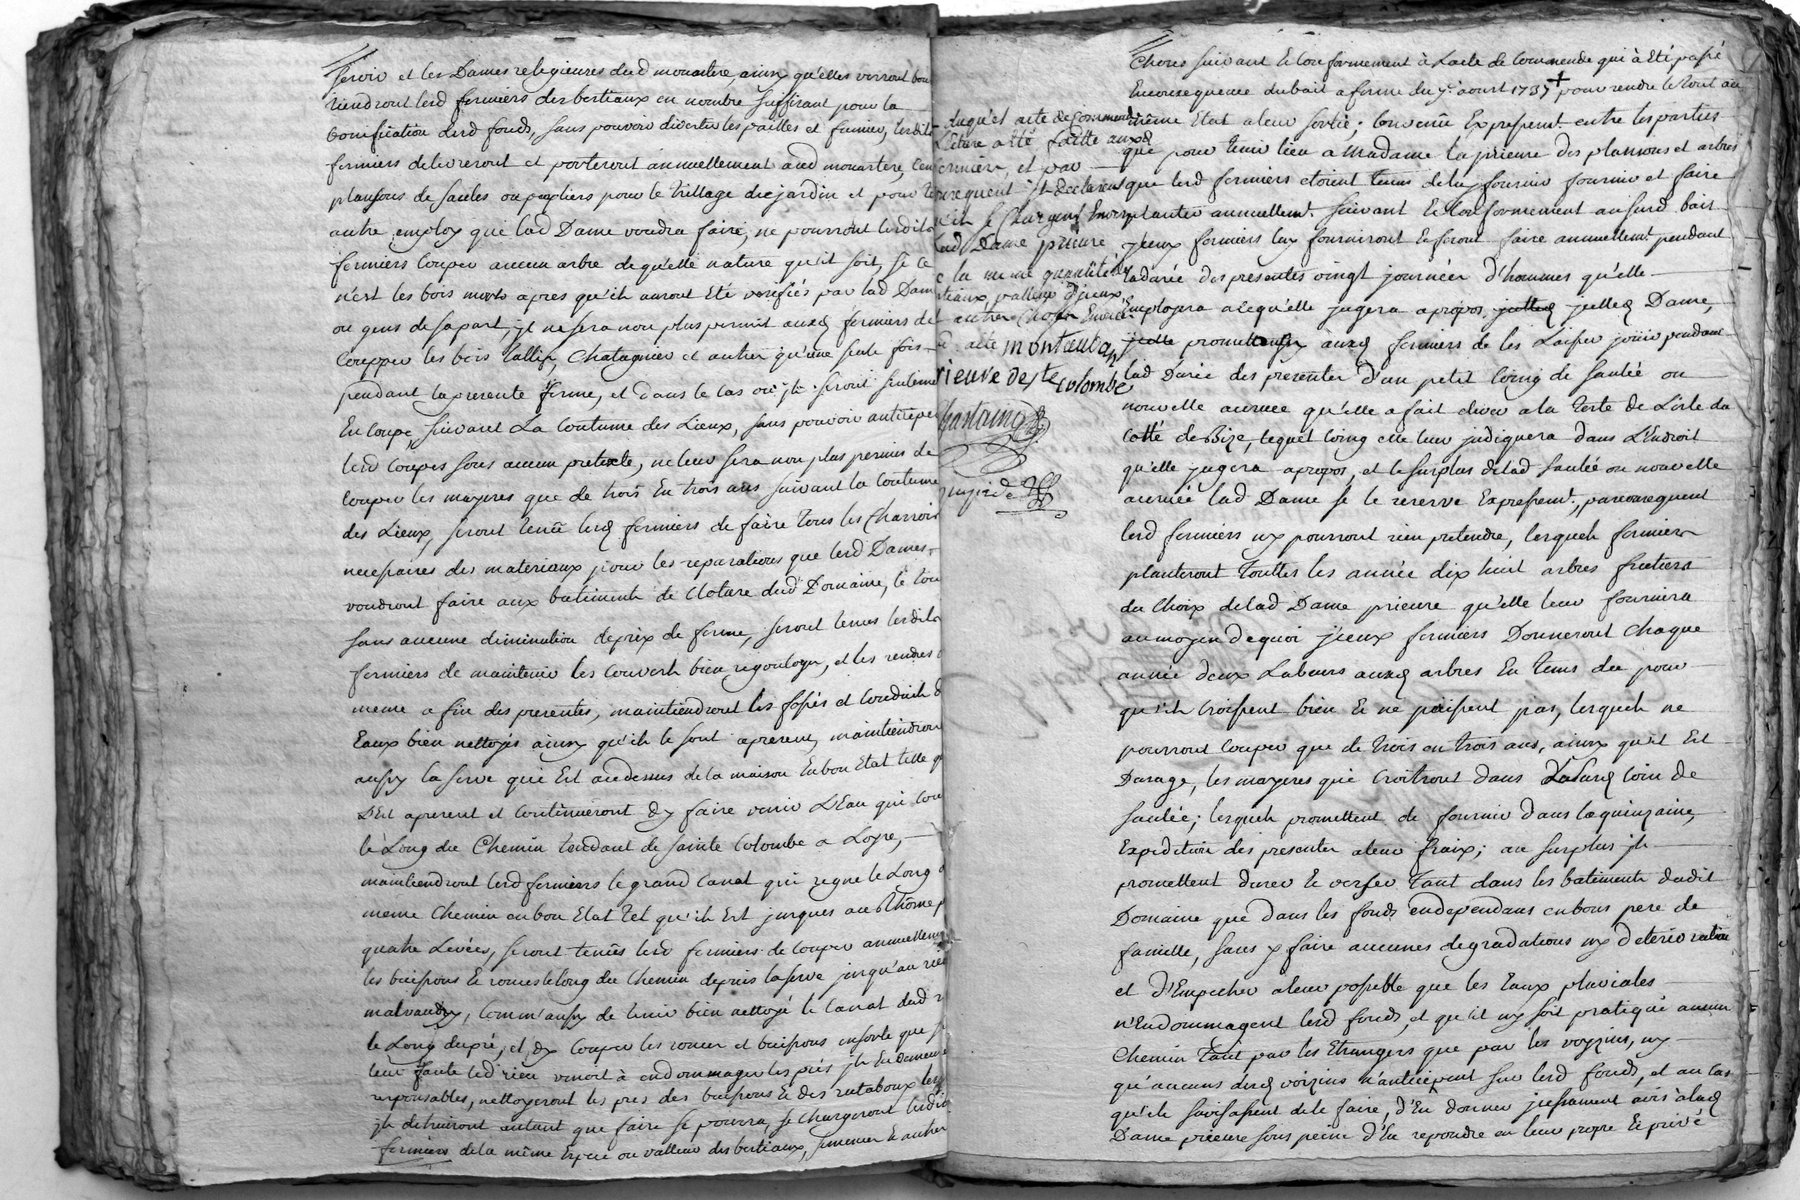 servir et les Dames religieuses dud monastere, ainsy qu'elles verront bon
tiendront lesd fermiers des bestiaux en nombre suffisant pour la
bonification desd fonds, sans pouvoir divertir les pailles et fumier, lesdits
fermiers delivreront et porteront annuellement aud monastere, cen
plansons de saules ou peupliers pour le treillage du jardin et pour
autre employ que lad Dame voudra faire, ne pourront lesdits
fermiers couper aucun arbre de qu'elle nature qu'il soit, si ce
n'est les bois morts apres qu'ils auront Eté verifiés par lad Dame
ou gens de sa part, jl ne sera non plus permis auxd fermiers de
Coupper les bois taillis, Chatagnier et autres qu'une seule fois
pendant la presente ferme, et dans le cas où jls seront seulement
En coupe, suivant La Coutume des Lieux, sans pouvoir anticiper
lesd coupes sous aucun pretexte, ne leur sera non plus permis de
couper les mayeres que de trois En trois ans suivant la Coutume
des Lieux, seront tenus lesd fermiers de faire tous les Charrois
necessaires des materiaux pour les reparations que lesd Dames
voudront faire aux batiments de Cloture dud Domaine, le tout
sans aucune diminution de prix de ferme, seront tenus lesdits
fermiers de maintenir les couverts bien regouloyes, et les rendres
meme a fin des presentes, maintiendront les fossés et Conduits d
Eaux bien nettoyés ainsy qu'ils le sont apresent, maintiendront
aussy la serve qui Est au dessus de la maison En bon Etat telle q
L'Est apresent et Continueront d'y faire venir L'Eau qui cou
le Long du Chemin tendant de Sainte Colombe a Loyre,
maintiendront lesd fermiers le grand Canal qui regne le Long d
meme Chemin en bon Etat tel qu'il Est jusques au Rhône p
quatre Levées, seront tenus lesd fermiers de couper annuellement
les buissons et ronces le long du Chemin depuis la serve jusqu'au rieu
malvaudy, Comm'aussy de tenir bien nettoyé le Canal dud r
le Long du pré, et d'y couper les ronces et buissons en sorte que si
leur faute led rieu venoit à endommager les prés jls En demeure
responsables, nettoyeront les pres des buissons et des rataboux les
jls detruiront autant que faire se pourra, se Chargeront lesdits
fermiers de la même Espece ou valleur des bestiaux, semences et autres
Choses suivant et Conformement à L'acte de Commende qui à Eté passé
En consequence du bail a ferme du 7e aoust 1737 + pour rendre le tout au
même Etat a leur sortie; Convenu Expressement entre les parties
que pour tenir lieu a Madame La prieure des plansons et arbres
que lesd fermiers etoient tenus de luy fournir et faire
planter annuellement suivant Et Conformement au susd bail
jceux fermiers luy fourniront Et feront faire annuellement pendant
la durée des presentes vingt journées d'hommes qu'elle
Employera a lequ'elle jugera apropos, jcelled Dame,
promettant auxd fermiers de les Laisser jouir pendant
lad Durée des presentes d'un petit Coing de saulée ou
nouvelle acruee qu'elle a fait clorre a la teste de L'isle du
Cotté de Bize, lequel Coing elle leur jndiquera dans L'Endroit
qu'elle jugera apropos, et le surplus de lad saulée ou nouvelle
acruée lad Dame se le reserve Expressement, par consequent
lesd fermiers ny pourront rien pretendre, lesquels fermiers
planteront touttes les année dix huit arbres fruitiers
du Choix de lad Dame prieure qu'elle leur fournira
au moyen de quoi jceux fermiers Donneront Chaque
année deux Labeurs auxd arbres En tems du pour
qu'ils Croissent bien Et ne perissent pas, lesquels ne
pourront Couper que de trois en trois ans, ainsy qu'il Est
Dusage, les mayeres qui Croitront dans Ledit coin de
saulée; lesquels promettent de fournir dans la quinzaine,
Expedition des presentes a leur fraix; au surplus jls
promettent d'user Et verser tant dans les batiments dudit
Domaine que dans les fonds en dependans en bons pere de
famille, sans y faire aucunes degradations ny deterioration
et d'Empecher a leur possible que les Eaux pluviales
n'Endommagent lesd fonds, et qu'il ny soit pratiqué aucun
Chemin tant par les Etrangers que par les voyzins, ny
qu'aucuns desd voizins n'anticipent sur lesd fonds, et au cas
qu'ils s'avisassent de le faire, d'En donner jncessament avis à lad
Dame prieure sous peine d'En repondre en leur propre Et privé
duquel acte de Commende
Lecture a été faitte auxd
fermiers, et par
consequent jls declarent
qu'ils se Chargent Envers
lad Dame prieure
de la meme quantité de
bestiaux, valleur d'jceux
et autres Choses Enoncé
aud acte montauban
prieure de ste colombe
Chastaing